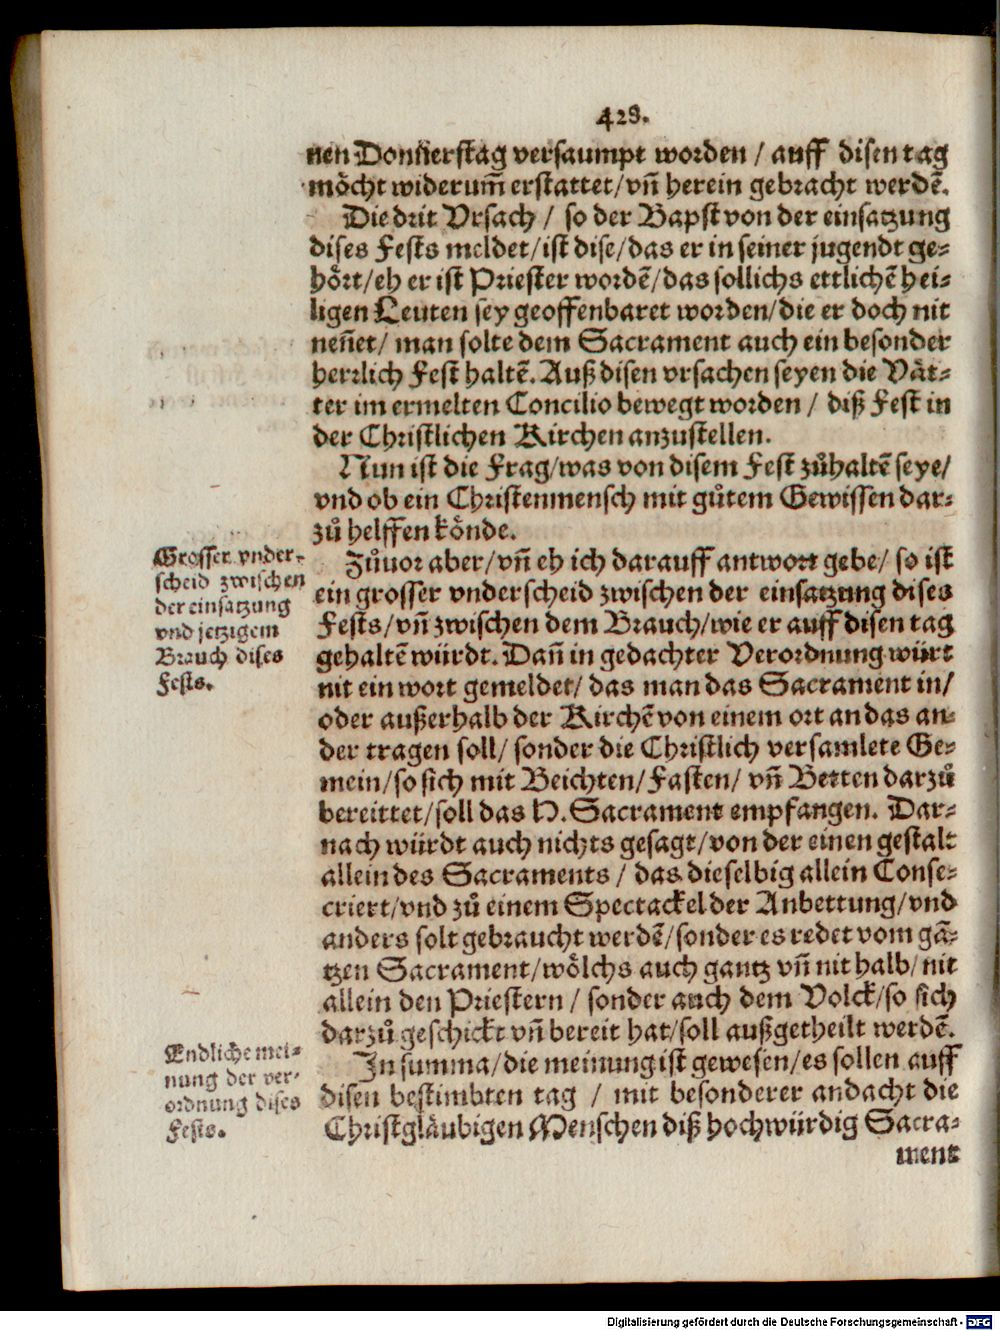 428.
nen Donnerstag versaumpt worden / auff disen tag
möcht widerum̃ erstattet/vñ herein gebracht werdẽ.
Die drit Vrsach / so der Bapst von der einsatzung
dises Fests meldet/ist dise/das er in seiner jugendt ge⸗
hört/eh er ist Priester wordẽ/das sollichs ettlichẽ hei⸗
ligen Leuten sey geoffenbaret worden/die er doch nit
neñet/ man solte dem Sacrament auch ein besonder
herrlich Fest haltẽ. Auß disen vrsachen seyen die Vät⸗
ter im ermelten Concilio bewegt worden / diß Fest in
der Christlichen Kirchen anzustellen.
Nun ist die Frag/was von disem Fest zůhaltẽ seye/
vnd ob ein Christenmensch mit gůtem Gewissen dar⸗
zů helffen könde.
Grosser vnder⸗
scheid zwischen
der einsatzung
vnd jetzigem
Brauch dises
Fests.
Zůuor aber/vñ eh ich darauff antwort gebe/ so ist
ein grosser vnderscheid zwischen der einsatzung dises
Fests/vñ zwischen dem Brauch/wie er auff disen tag
gehaltẽ würdt. Dañ in gedachter Verordnung würt
nit ein wort gemeldet/ das man das Sacrament in/
oder außerhalb der Kirchẽ von einem ort an das an⸗
der tragen soll/ sonder die Christlich versamlete Ge⸗
mein/so sich mit Beichten/Fasten/ vñ Betten darzů
bereittet/soll das H. Sacrament empfangen. Dar⸗
nach würdt auch nichts gesagt/von der einen gestalt
allein des Sacraments / das dieselbig allein Conse⸗
criert/vnd zů einem Spectackel der Anbettung/vnd
anders solt gebraucht werdẽ/sonder es redet vom gã⸗
tzen Sacrament/wölchs auch gantz vñ nit halb/nit
allein den Priestern / sonder auch dem Volck/so sich
darzů geschickt vñ bereit hat/soll außgetheilt werdẽ.
Endliche mei⸗
nung der ver⸗
ordnung dises
Fests.
In summa/die meinung ist gewesen/es sollen auff
disen bestimbten tag / mit besonderer andacht die
Christgläubigen Menschen diß hochwürdig Sacra⸗
ment
Digitalisierung gefördert durch die Deutsche Forschungsgemeinschaft - DFG